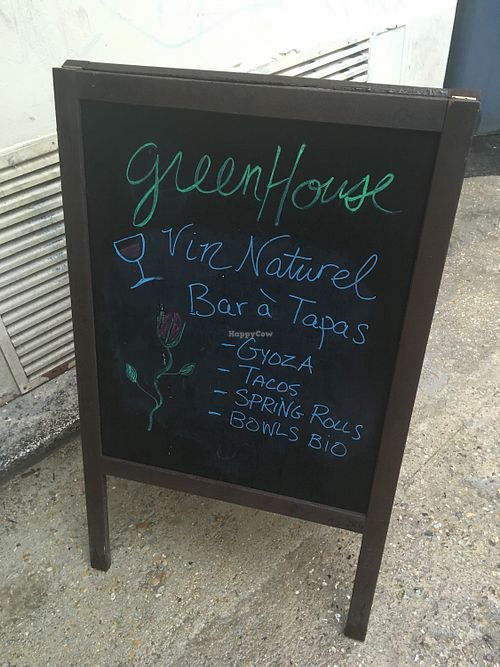 greenHouse
Vin Naturel
Bar à Tapas
HappyCow
- GYOZA
- TACOS
- SPRING ROLLS
- BOWLS BIO